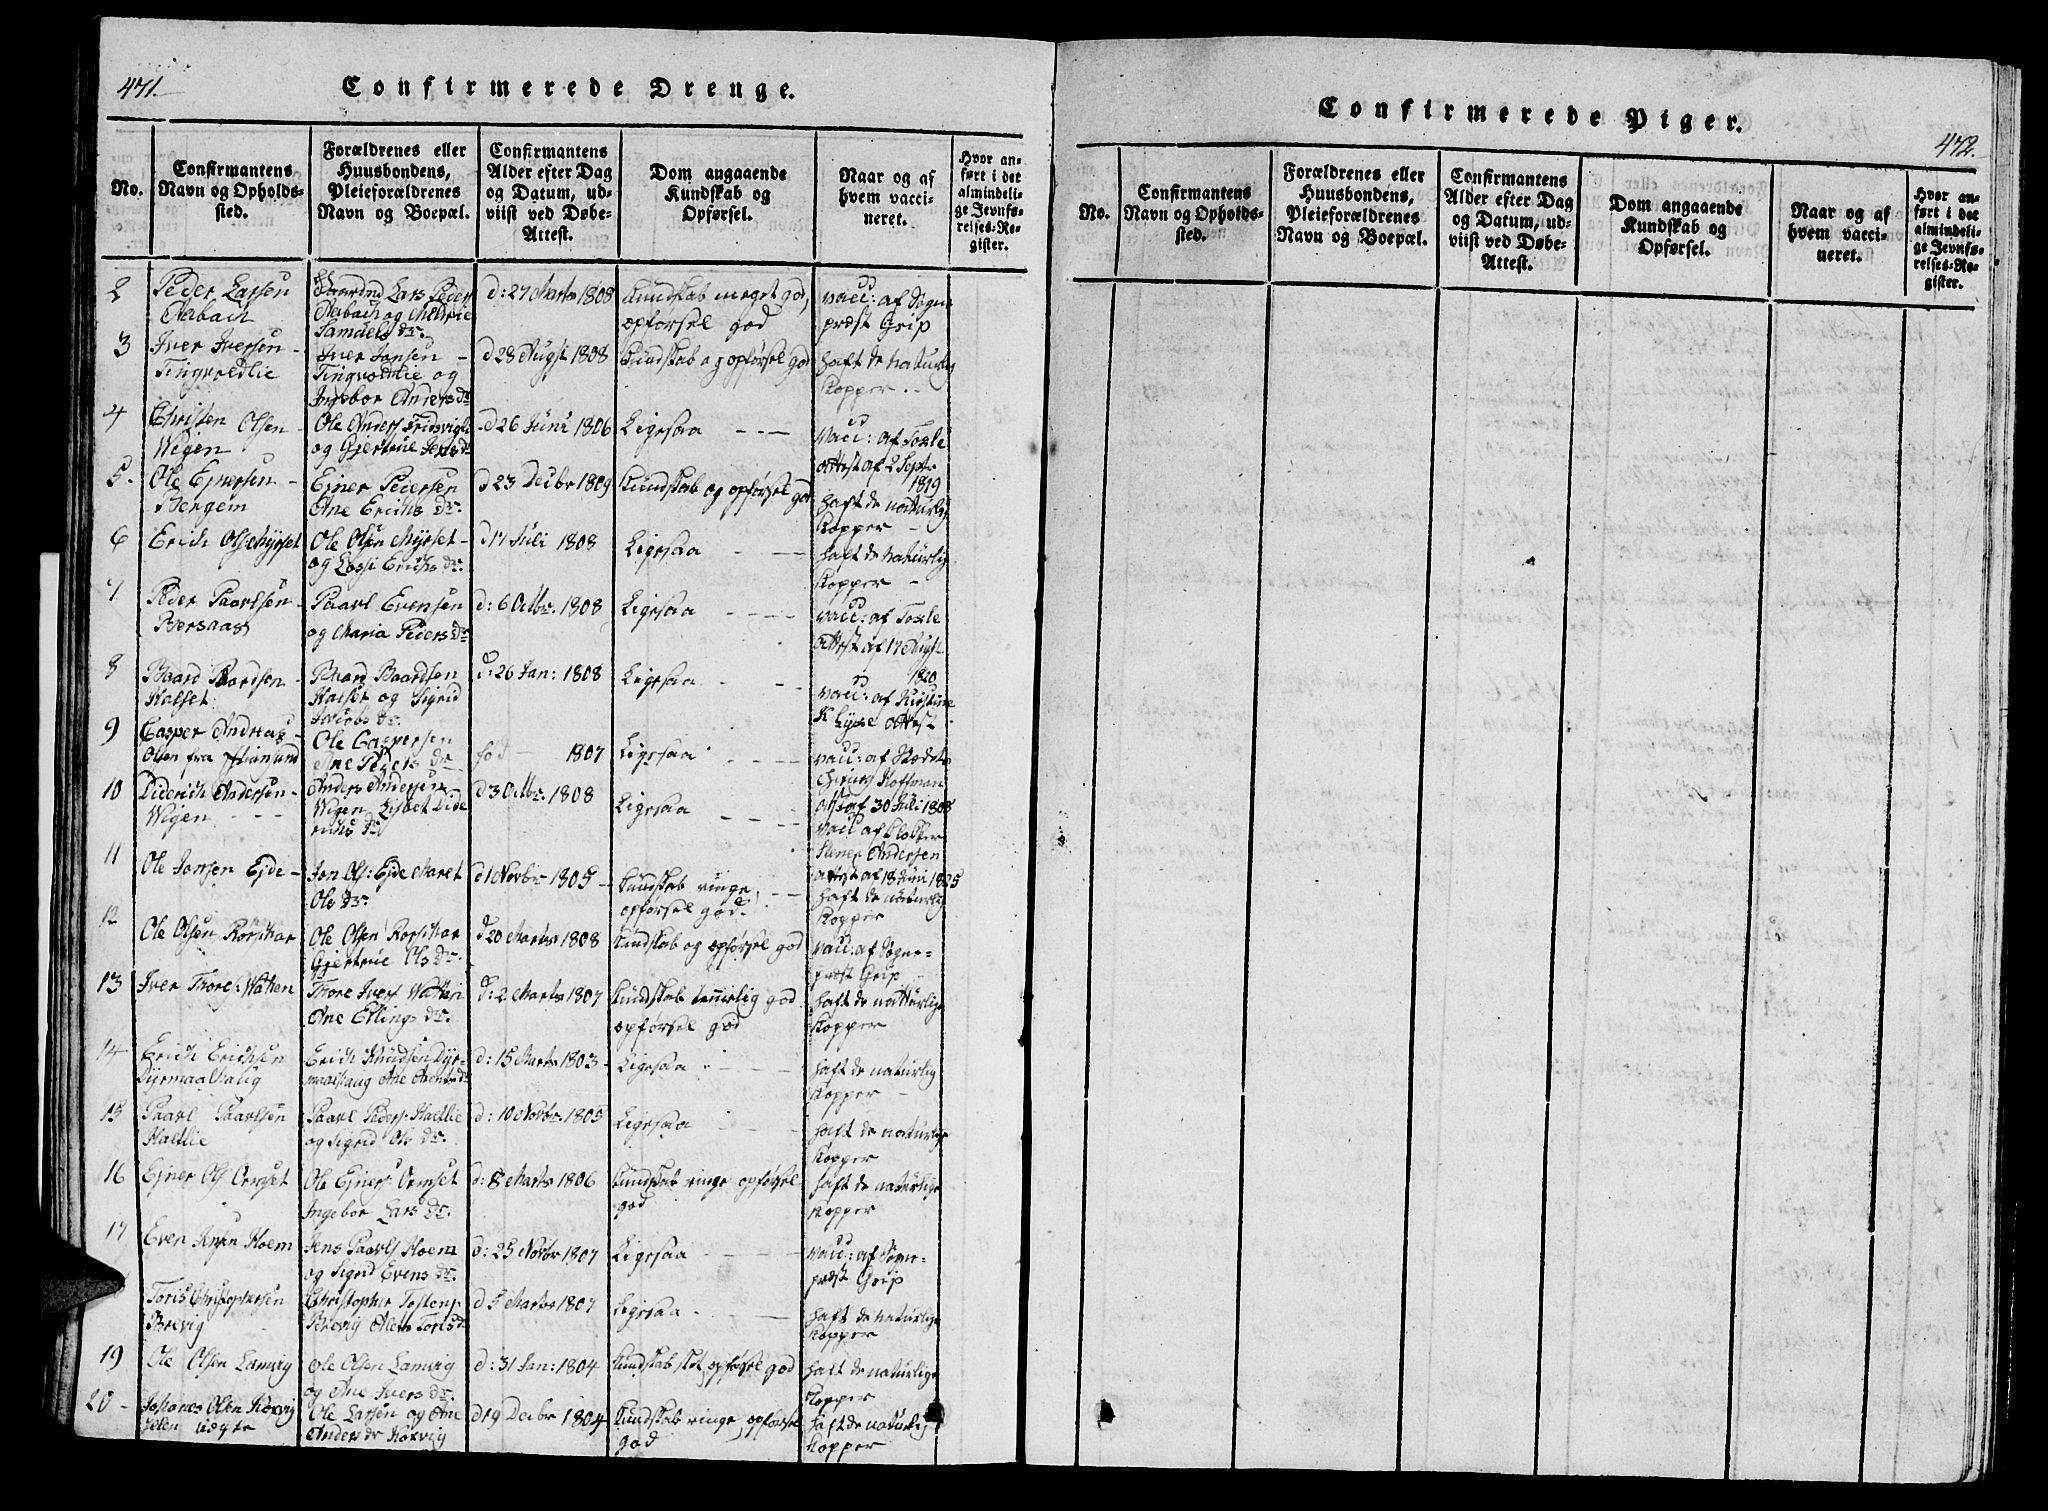 471.
Confirmerede Drenge.
No.
Confirmantens
Navn og Opholds-
sted.
Forældrenes eller
Huusbondens,
Pleieforældrenes
Navn og Boepæl.
Confirmantens
Alder efter Dag
og Datum, ud-
viist ved Døbe-
Attest.
Dom angaaende
Kundskab og
Opførsel.
Naar og af
hvem vacci-
neret.
Hvor an-
ført i det
almindeli-
ge Jevnfø-
relses-Re-
gister.
2
Peder Larsen
Aabach
Lars Peders
Aabach og Marie
Samuels dr.
d: 27 Marts 1808
Kundskab meget god,
opførsel god
vacc: af Sogne
præst Grip
3
Iver Iversen -
Tingvoldlie
Iver Jonsen -
Tingvoldlie og
Ingebor Anders dr
d 28 Augst 1808
Kundskab og opførsel god
haft de naturlig
Kopper - -
4
Christen Olsen -
Wigen
Ole Anders
og Gjertrue Jens dr
d 26 Juni 1806
Ligesaa - - -
vacc: af Foxle
attest af 2 Sept.
1819
5.
Ole Ejnersen -
Bergem
Ejner Pedersen
Ane Erichs dr.
d 23 Decbr 1809
Kundskab og opførsel god
haft de naturlig
Kopper -
6
Erich Ols Myrset
Ole Olsen Myrset -
og Lossi Erichs dr.
d 17 Juli 1808
Ligesaa - - -
haft de naturlig
Kopper -
7
Peder Paarlsen -
Bersaas
Paarl Evensen
og Maria Peders dr
d: 6 Octbr. 1808
Ligesaa - - - -
vacc: af Foxle
attest af 17 Augst
1820
8
Baard Baardsen -
Halset
Baard Baardsen
Halset og Sigrid
Jacobs dr.
d: 26 Jan: 1808
Ligesaa - - -
vacc: af Kirstine
K Lyhe attest
9
Casper Andreas -
Olsen fra Christiansund
Ole Caspersen
Ane Peders dr
fød - 1807
Ligesaa - - - -
vacc: af
Hoffman
attst af 30 Juli 1808
10
Diderich Andersen -
Wigen - - -
Anders Andersen
Wigen Lisbet Dide
richs dr
d 3 Octbr. 1808
Ligesaa - - - -
vacc af Klokker
Stener Andersen
attest af 18 Juni 1825
11
Ole Jonsen Ejde -
Jon Ols: Ejde Maret
Ols dr.
d 1 Novbr 1805 -
Kundskab ringe, - -
opførsel god.
haft de naturlig
Kopper
12
Ole Olsen Korsikar
Ole Olsen Korsikar
Gjertrue Ols dr.
d 20 Marts 1808
Kundskab og opførsel god
vacc. af Sogne-
præst Grip -
13
Iver Thore: Watten
Thore Ivers Watten
Ane Ellings dr.
d: 2 Marts 1807
Kundskab temelig god
opførsel god
haft de naturlige
Kopper
14
Erich Erichsen
Dyrmaalhaug
Erich Knudsen Dyr-
maalhaug Ane Arents dr
d: 15 Marts 1803 -
Ligesaa - - - -
haft de naturlig
Kopper -
15
Paarl Paarlsen
Haltlie
Paarl Peders. Haltlie
og Sigrid Ols dr.
d: 10 Novbr. 1805
Ligesaa - - -
haft de naturlige
Kopper
16
Ejner Ols Ormset
Ole Ejners. Ormset
Ingebor Lars dr.
d: 8 Marts 1806
Kundskab ringe opførsel
god
haft de naturlige
Kopper
17
Even Jensen Hoem
Jens Paarls Hoem
og Sigrid Evens dr.
d: 25 Novbr 1807
Ligesaa - - - -
vacc: af Sogne-
præst Grip
Toris Christophersen
Brevig
Christopher Tostens
Brevig Alem Toris dr
d 5 Marts 1807
Ligesaa. - - -
haft de naturlige
Kopper
19
Ole Olsen Lamvig
Ole Olsen Lamvig
og Ane Ivers dr.
d: 31 Jan: 1804
Kundskab slet, opførsel god
haft de naturlige
Kopper
20 -
Johanes Olsen Korvig
Ole Larsen og Ane
Anders dr Korvig
d 19 Decbr 1804
Kundskab ringe, opførsel
god
haft de naturlig
Kopper
Confirmerede Piger.
472.
No.
Confirmantens
Navn og Opholds-
sted.
Forældrenes eller
Huusbondens,
Pleieforældrenes
Navn og Boepæl.
Confirmantens
Alder efter Dag
og Datum, ud-
viist ved Døbe-
Attest.
Dom angaaende
Kundskab og
Opførsel.
Naar og af
hvem vacci-
neret.
Hvor an-
ført i det
almindeli-
ge Jevnfø-
relses-Re-
gister.